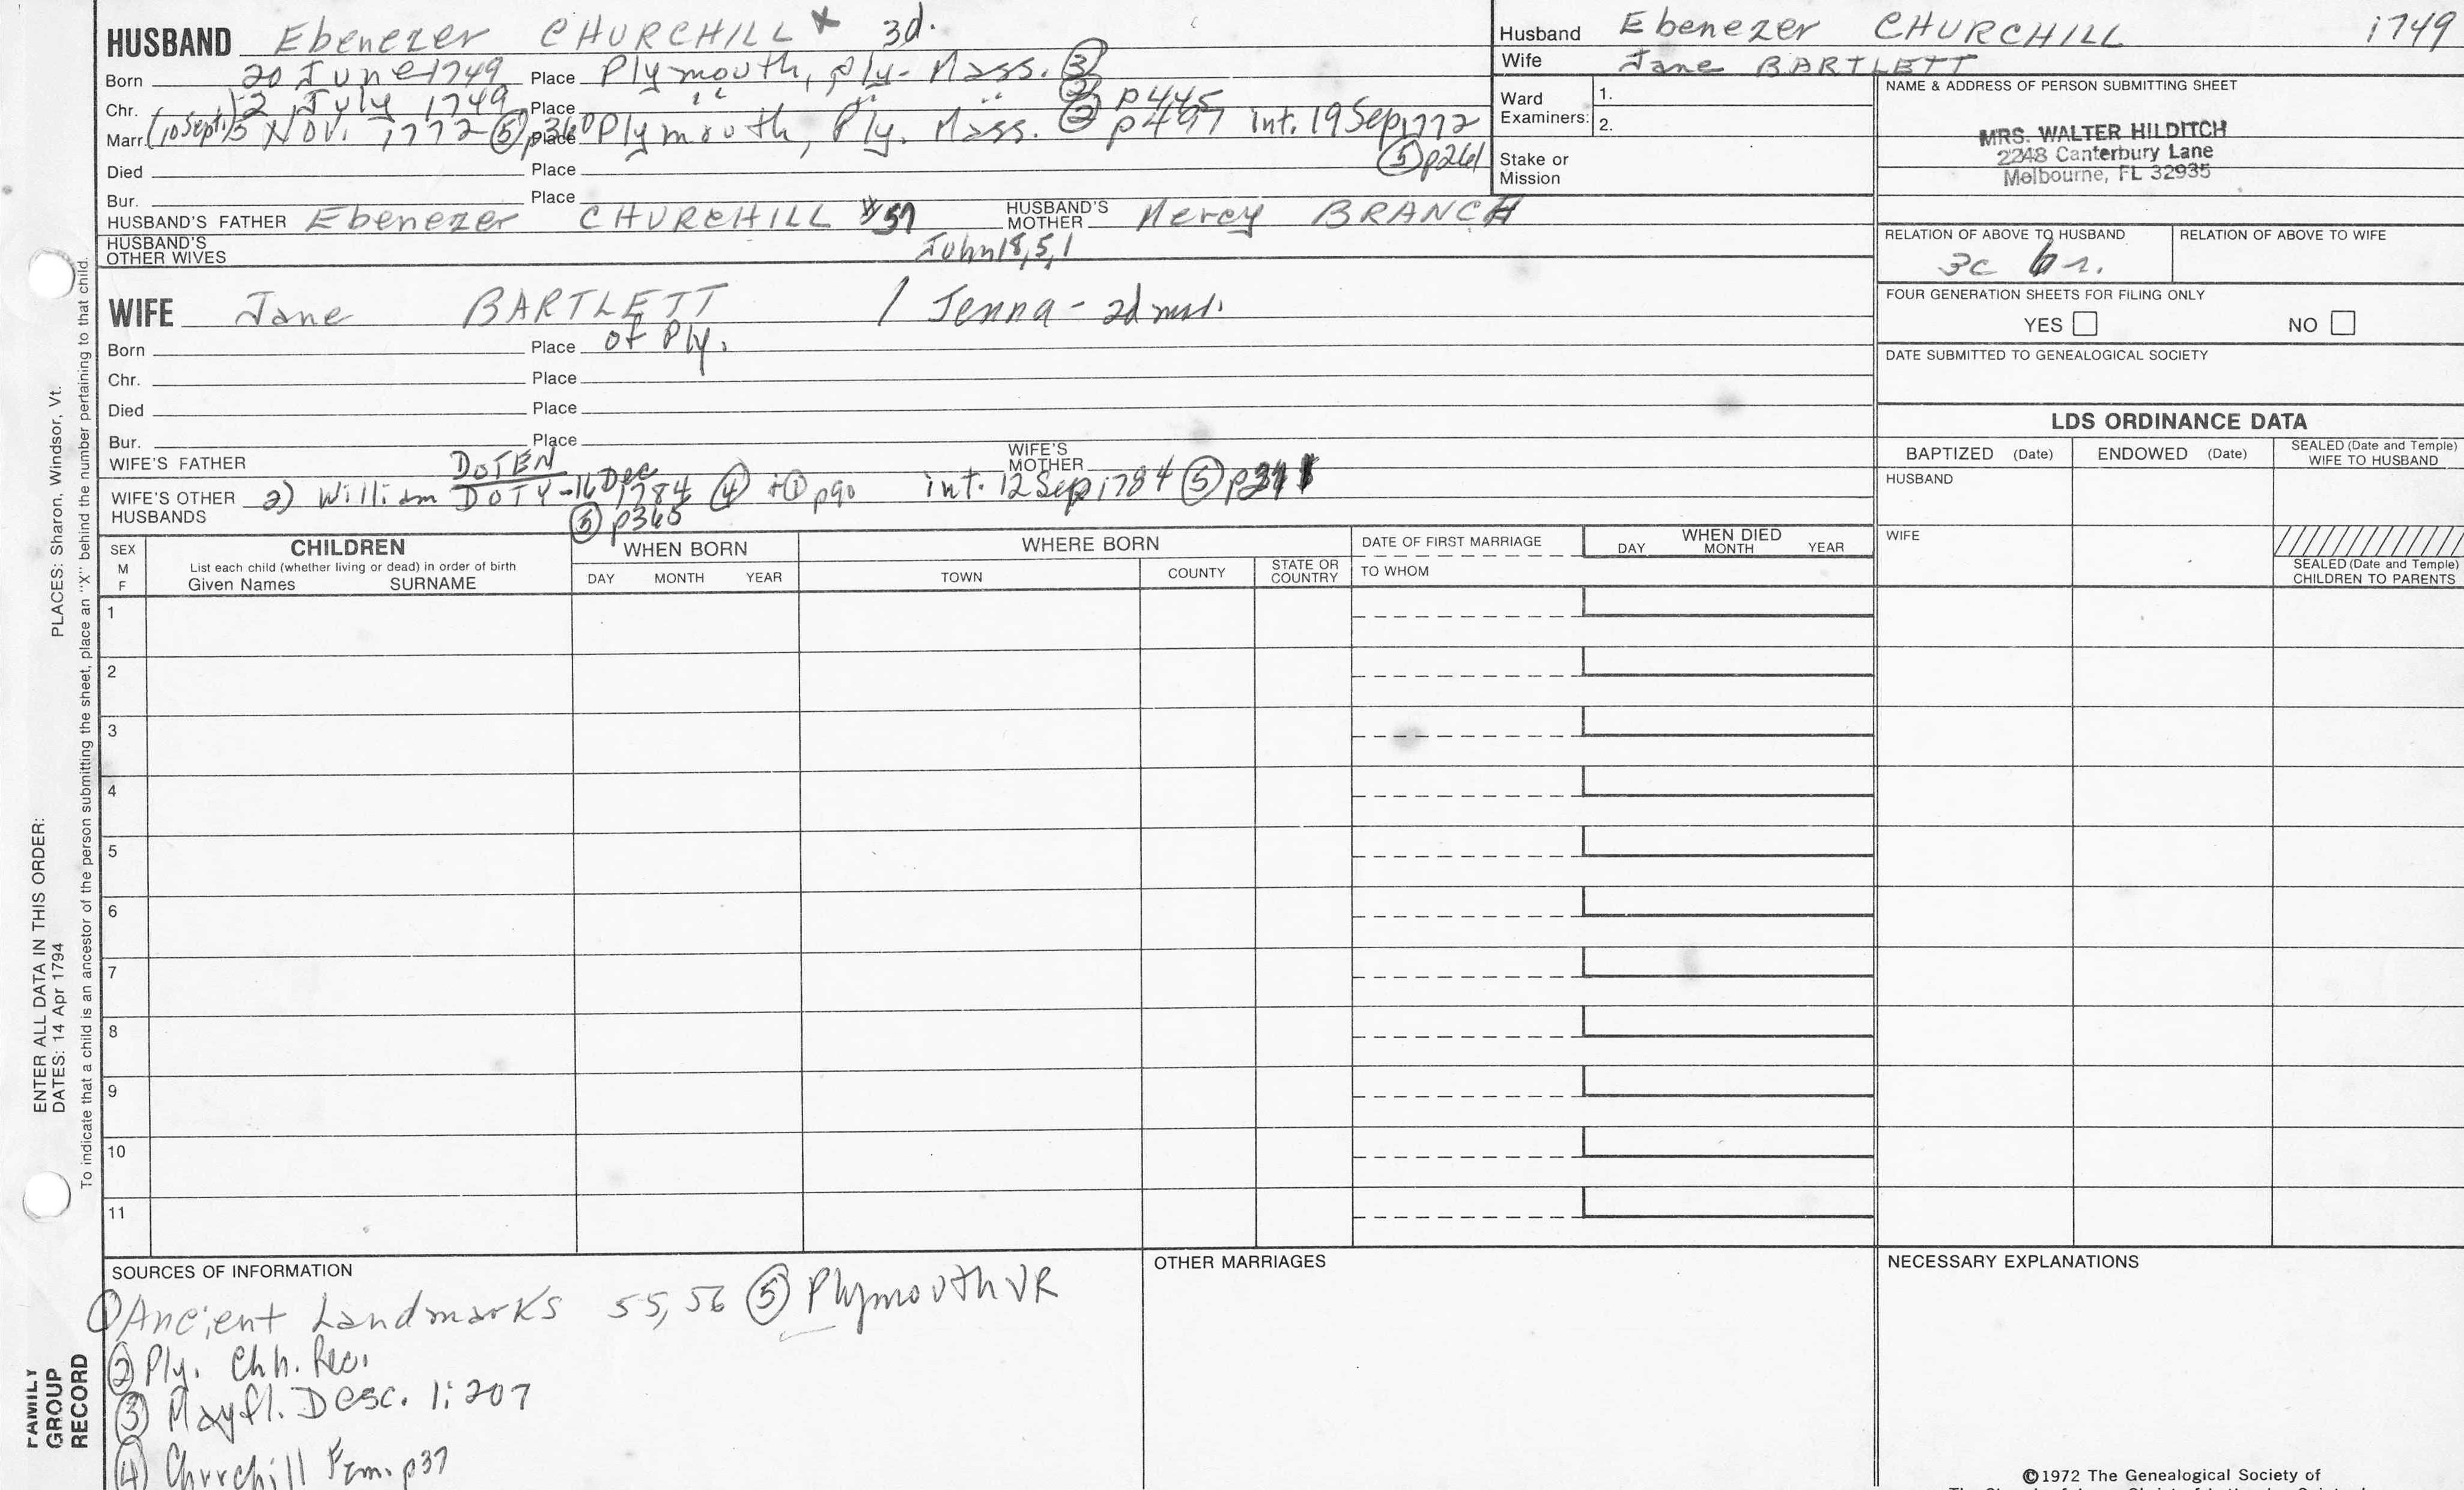 HUSBAND Ebenezer CHURCHILL x 3d.
Born 20 June 1749 Place Plymouth, Ply- Mass. ③
Chr. 2 July 1749 Place " " " ② p445
Marr. (10 Sept.) 5 Nov. 1772 ⑤ p360 Place Plymouth, Ply. Mass. ② p497 int. 19 Sep 1772
⑤ p261
Died Place
Bur. Place
HUSBAND'S FATHER Ebenezer CHURCHILL #57 HUSBAND'S MOTHER Mercy BRANCH
HUSBAND'S OTHER WIVES John 18, 5, 1
WIFE Jane BARTLETT / Jenna - 2d mar.
Born Place of Ply.
Chr. Place
Died Place
Bur. Place
WIFE'S FATHER WIFE'S MOTHER
DOTEN
WIFE'S OTHER HUSBANDS 2) William DOTY - 16 Dec 1784 ④ + ① p90 int. 12 Sep 1784 ⑤
⑤ p365
Husband Ebenezer CHURCHILL 1749
Wife Jane BARTLETT
Ward Examiners: 1.
2.
Stake or Mission
NAME & ADDRESS OF PERSON SUBMITTING SHEET
MRS. WALTER HILDITCH
2248 Canterbury Lane
Melbourne, FL 32935
RELATION OF ABOVE TO HUSBAND RELATION OF ABOVE TO WIFE
3c 6r.
FOUR GENERATION SHEETS FOR FILING ONLY
YES NO
DATE SUBMITTED TO GENEALOGICAL SOCIETY
LDS ORDINANCE DATA
BAPTIZED (Date) ENDOWED (Date) SEALED (Date and Temple) WIFE TO HUSBAND
HUSBAND
WIFE
SEALED (Date and Temple) CHILDREN TO PARENTS
SEX M F
CHILDREN
List each child (whether living or dead) in order of birth
Given Names SURNAME
WHEN BORN
DAY MONTH YEAR
WHERE BORN
TOWN COUNTY STATE OR COUNTRY
DATE OF FIRST MARRIAGE
TO WHOM
WHEN DIED
DAY MONTH YEAR
1
2
3
4
5
6
7
8
9
10
11
SOURCES OF INFORMATION
① Ancient Landmarks 55, 56 ⑤ Plymouth VR
② Ply. Chh. Rec.
③ Mayfl. Desc. 1: 207
④ Churchill Fam. p37
OTHER MARRIAGES
NECESSARY EXPLANATIONS
©1972 The Genealogical Society of
ENTER ALL DATA IN THIS ORDER:
DATES: 14 Apr 1794 PLACES: Sharon, Windsor, Vt.
To indicate that a child is an ancestor of the person submitting the sheet, place an "X" behind the number pertaining to that child.
FAMILY
GROUP
RECORD